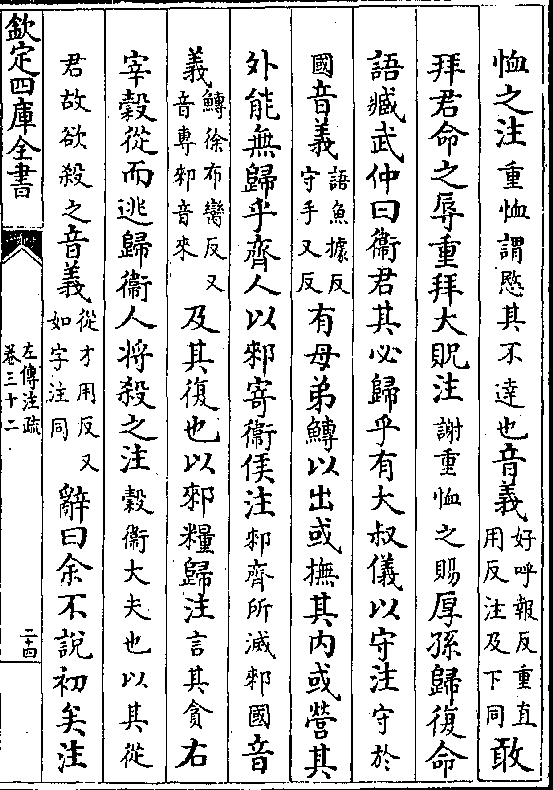 恤之注重恤謂愍其不達也音義好呼報反重直用反注及下同敢
拜君命之辱重拜大貺注謝重恤之賜厚孫歸復命
語臧武仲曰衞君其必歸乎有大叔儀以守注守於
國音義語魚據反守手又反有母弟鱄以出或撫其内或營其
外能無歸乎齊人以郲寄衞侯注郲齊所滅郲國音
義鱄徐布臠反又音專郲音來及其復也以郲糧歸注言其貪右
宰穀從而逃歸衞人將殺之注穀衞大夫也以其從
君故欲殺之音義從才用反又如字注同辭曰余不說初矣注
欽定四庫全書
左傳注疏
卷三十二
二十四